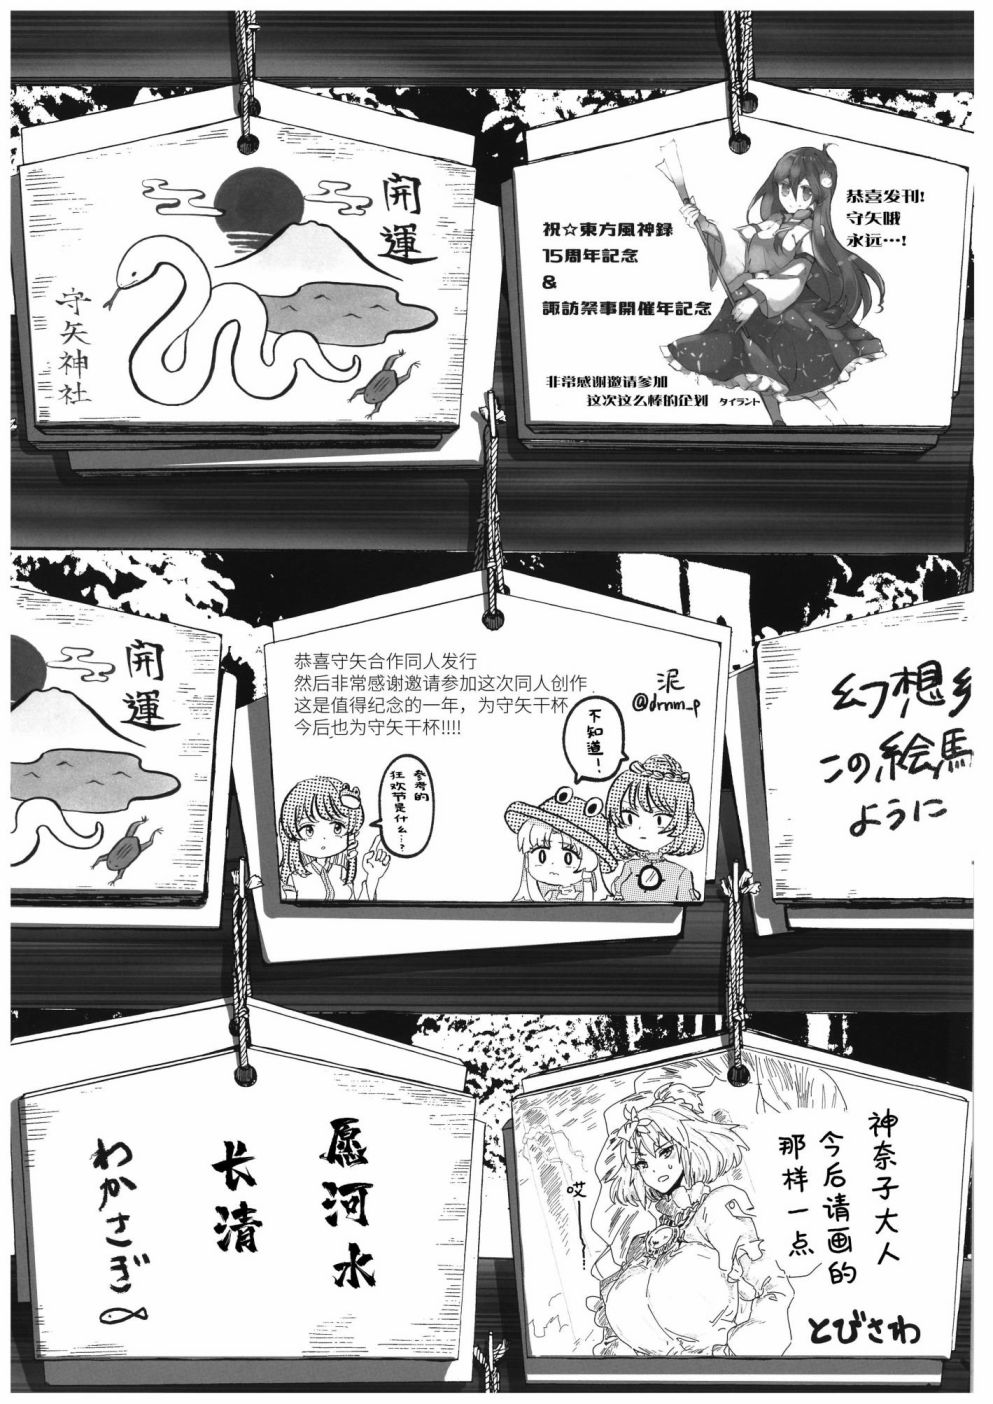 開運
守矢神社
祝☆東方風神録
15周年記念
&
諏訪祭事開催年記念
恭喜发刊!
守矢哦
永远…!
非常感谢邀请参加
这次这么棒的企划
タイラント
開運
恭喜守矢合作同人发行
然后非常感谢邀请参加这次同人创作
这是值得纪念的一年，为守矢干杯
今后也为守矢干杯!!!!
泥
@drnm_p
参考的
狂欢节是什么…?
不知道!
幻想
この絵馬
ように
愿河水
长清
わかさぎ
神奈子大人
今后请画的
那样一点
哎
とびさわ